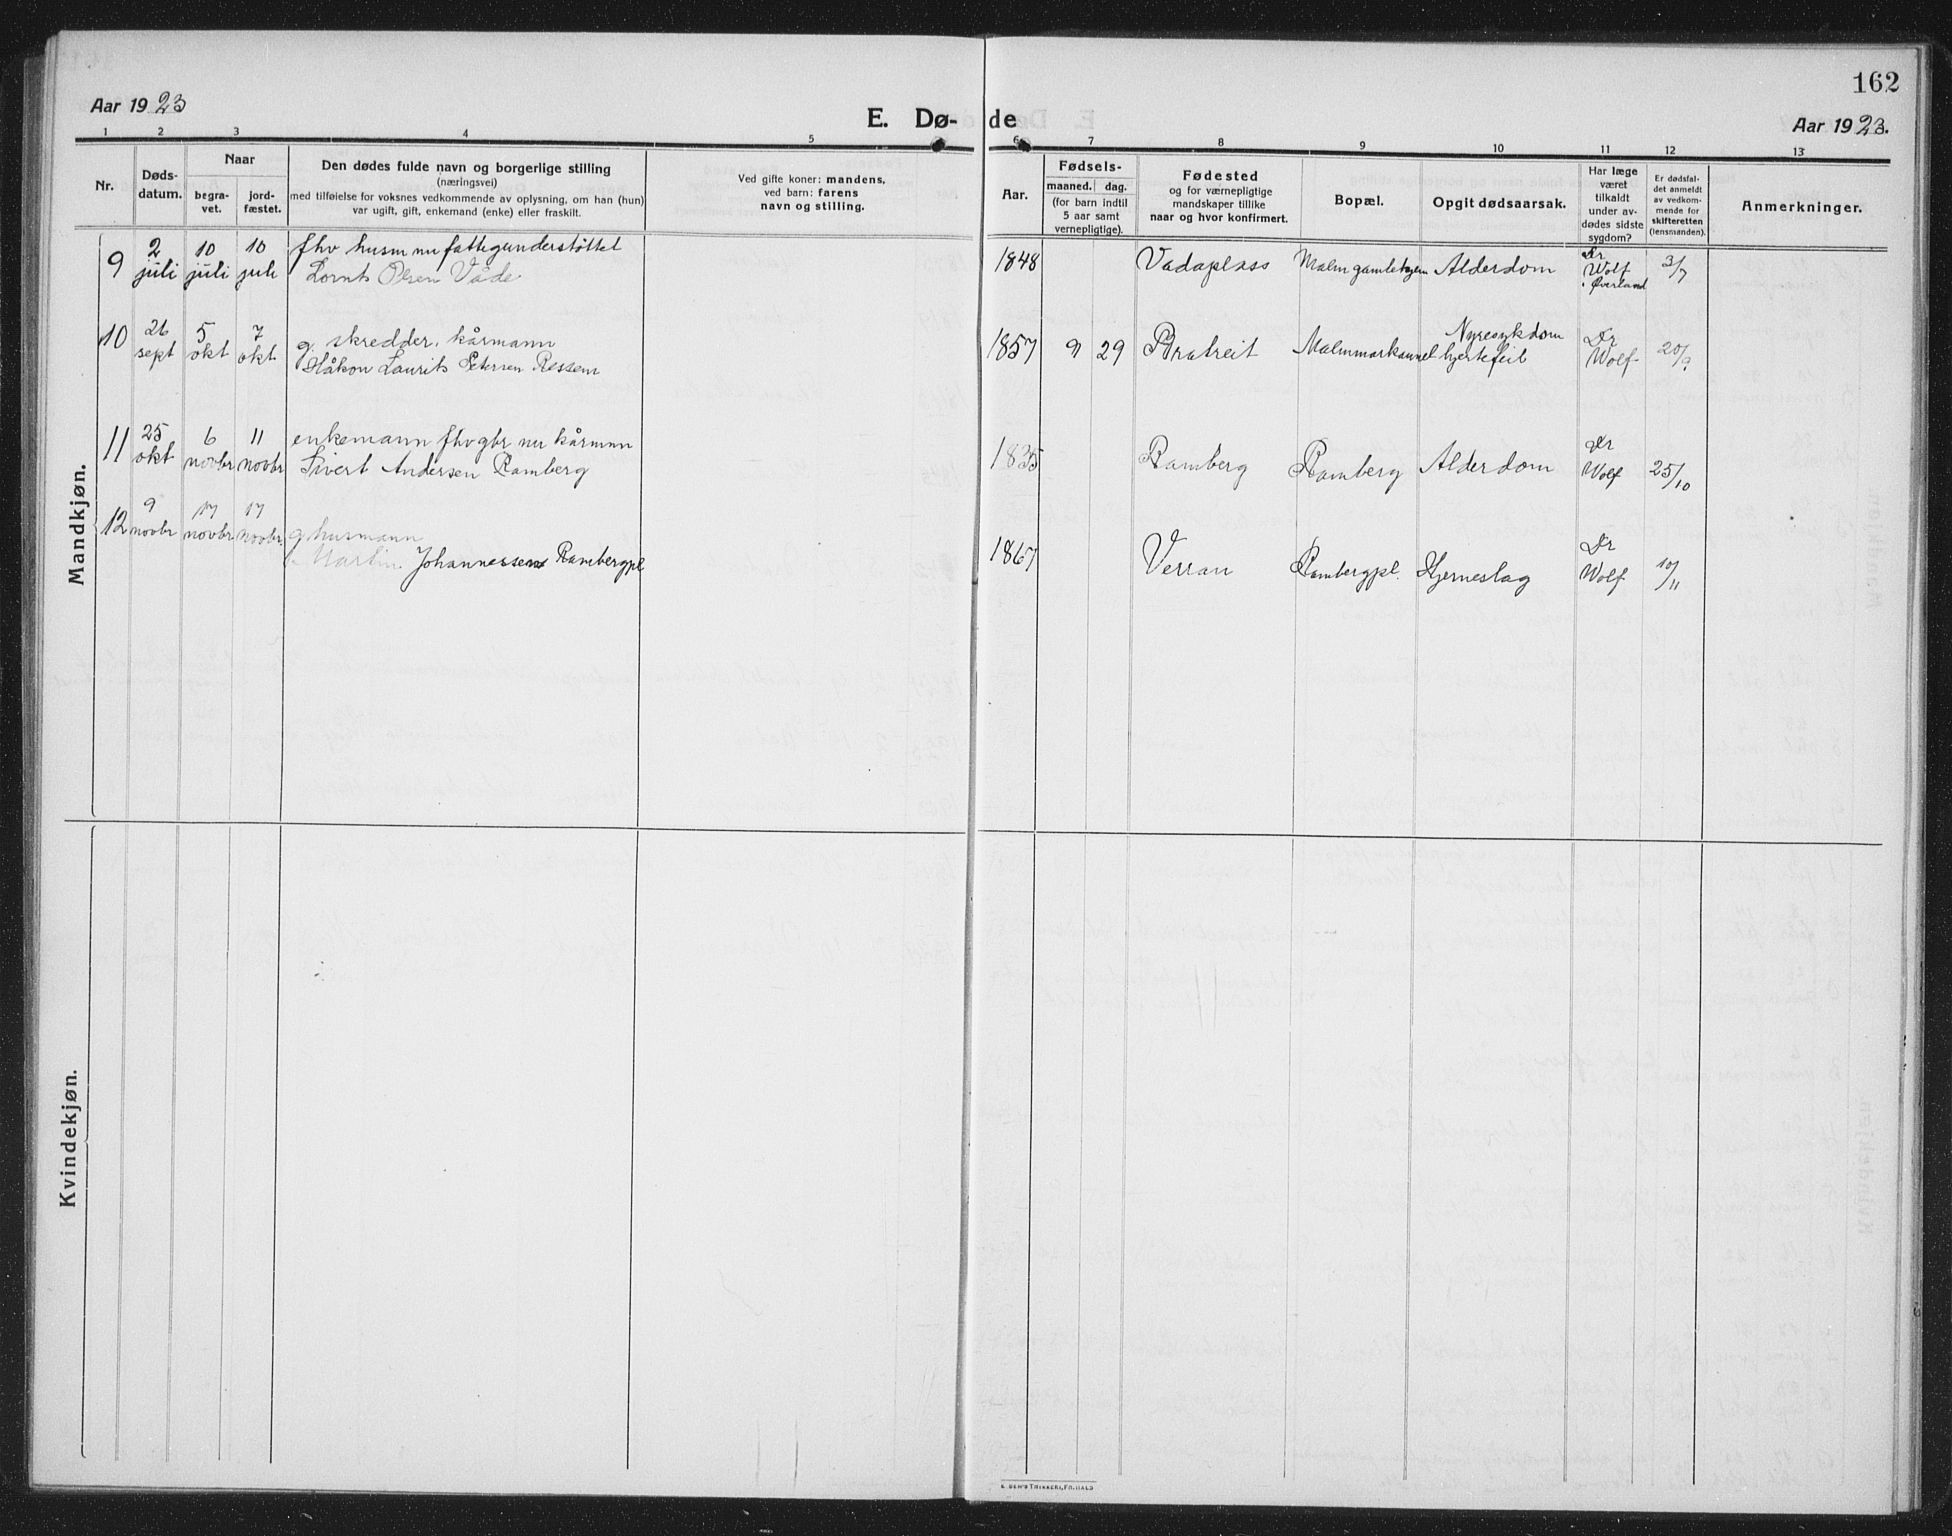 162
Aar 1923
E. Dø-
de
Aar 1923.
1 2 3 4 5 6 7 8 9 10 11 12 13
Nr.
Døds-
datum.
Naar
begra-
vet.
jord-
fæstet.
Den dødes fulde navn og borgerlige stilling
(næringsvei)
med tilføielse for voksnes vedkommende av oplysning, om han (hun)
var ugift, gift, enkemand (enke) eller fraskilt.
Ved gifte koner: mandens,
ved barn: farens
navn og stilling.
Aar.
Fødsels-
maaned. dag.
(for barn indtil
5 aar samt
vernepligtige).
Fødested
og for værnepligtige
mandskaper tillike
naar og hvor konfirmert.
Bopæl.
Opgit dødsaarsak.
Har læge
været
tilkaldt
under av-
dødes sidste
sygdom?
Er dødsfal-
det anmeldt
av vedkom-
mende for
skifteretten
(lensmanden).
Anmerkninger.
Mandkjøn.
9 2 juli 10 juli 10 juli fhv husm nu fattigunderstøttet
Lornts Olsen Våde
1848 Vadaplass Malm gamlehjem Alderdom Dr Wolf i Øverland 3/7
10 26 sept 5 okt 7 okt g. skredder, kårmann
Håkon Laurits Petersen Ressem
1857 9 29 Bratreit Malmmarkaunet Nyresykdom hjertefeil Dr Wolf 20/9
11 25 okt 6 novbr 11 novbr enkemann fhv gbr nu kårmnn
Sivert Andersen Ramberg
1835 Ramberg Ramberg Alderdom Dr Wolf 25/10
12 9 novbr 17 novbr 17 novbr. g husmann
Martin Johannessen Rambergpl
1867 Verran Rambergpl. Hjerneslag Dr Wolf 10/11
Kvindekjøn.